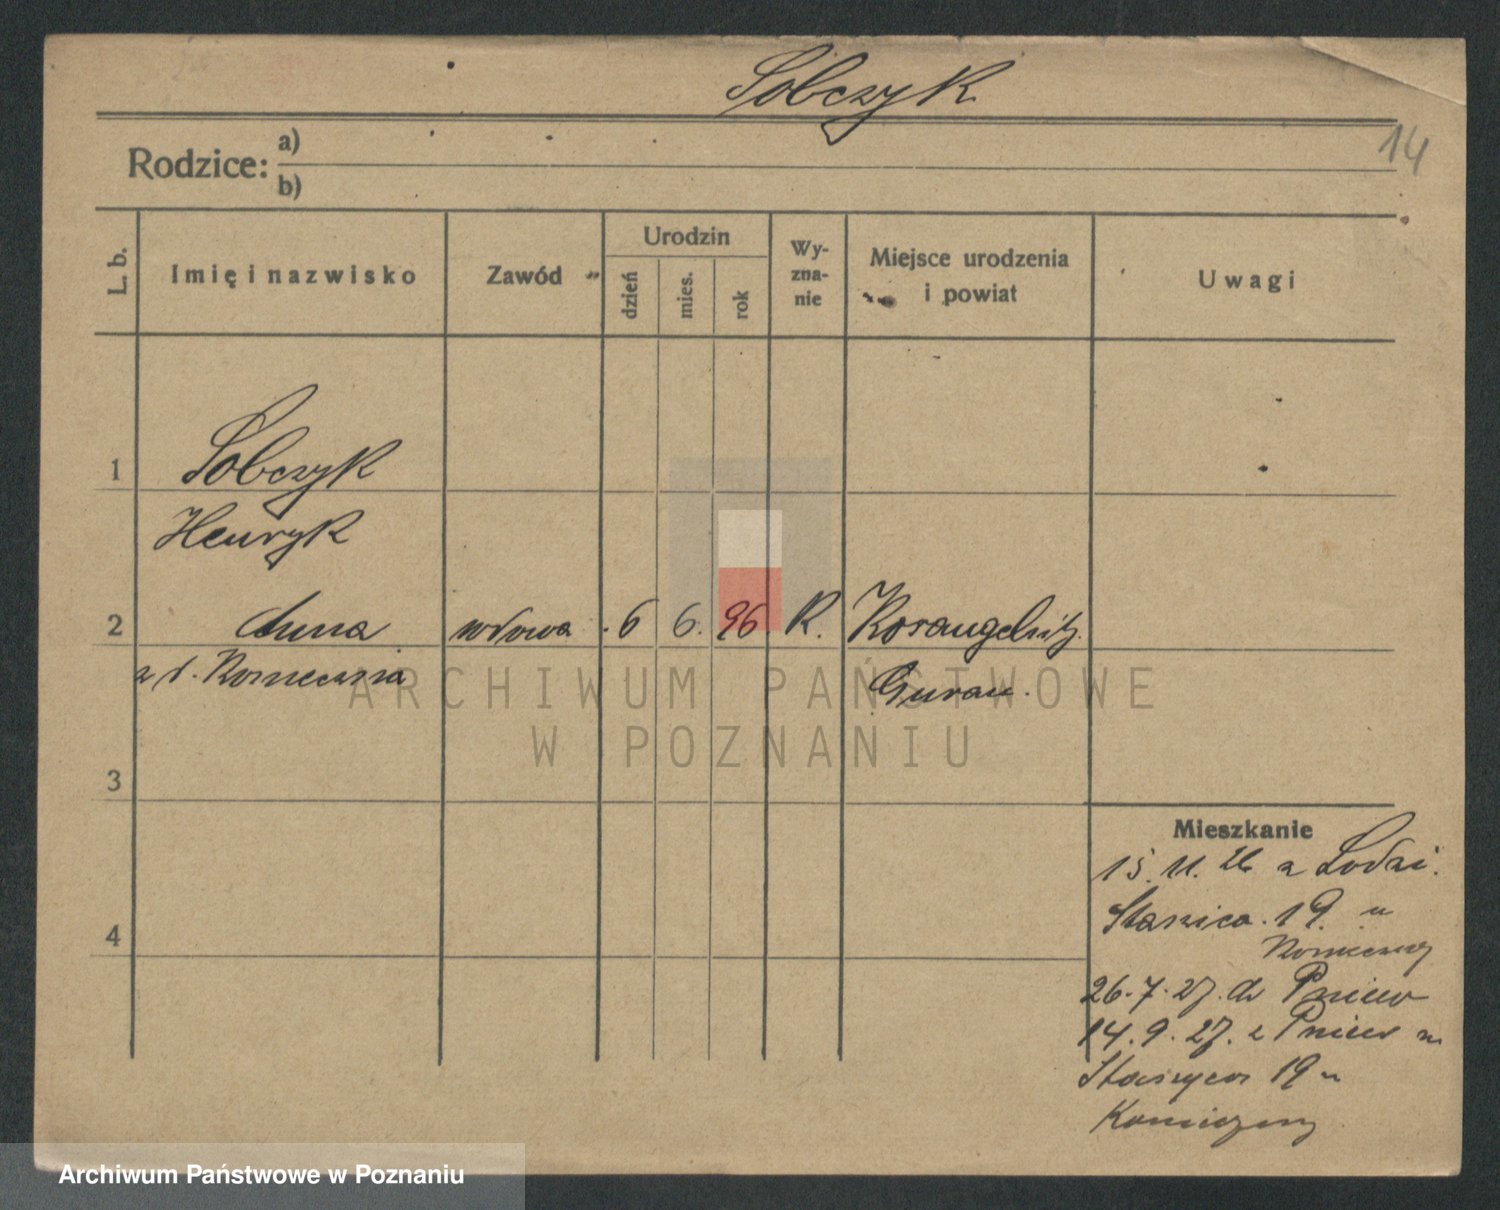 Sobczyk
14
Rodzice: a)
b)
L. b. Imię i nazwisko Zawód Urodzin dzień mies. rok Wyznanie Miejsce urodzenia i powiat Uwagi
1 Sobczyk
Henryk
2 Anna wdowa 6 6. 96. R.
z d.
3
Mieszkanie
15. 11. 26 z Łodzi.
Staszica 19 u
4
26. 7. 27. do Pniew
14. 9. 27. z Pniew
19 u
ARCHIWUM PAŃSTWOWE
W POZNANIU
Archiwum Państwowe w Poznaniu